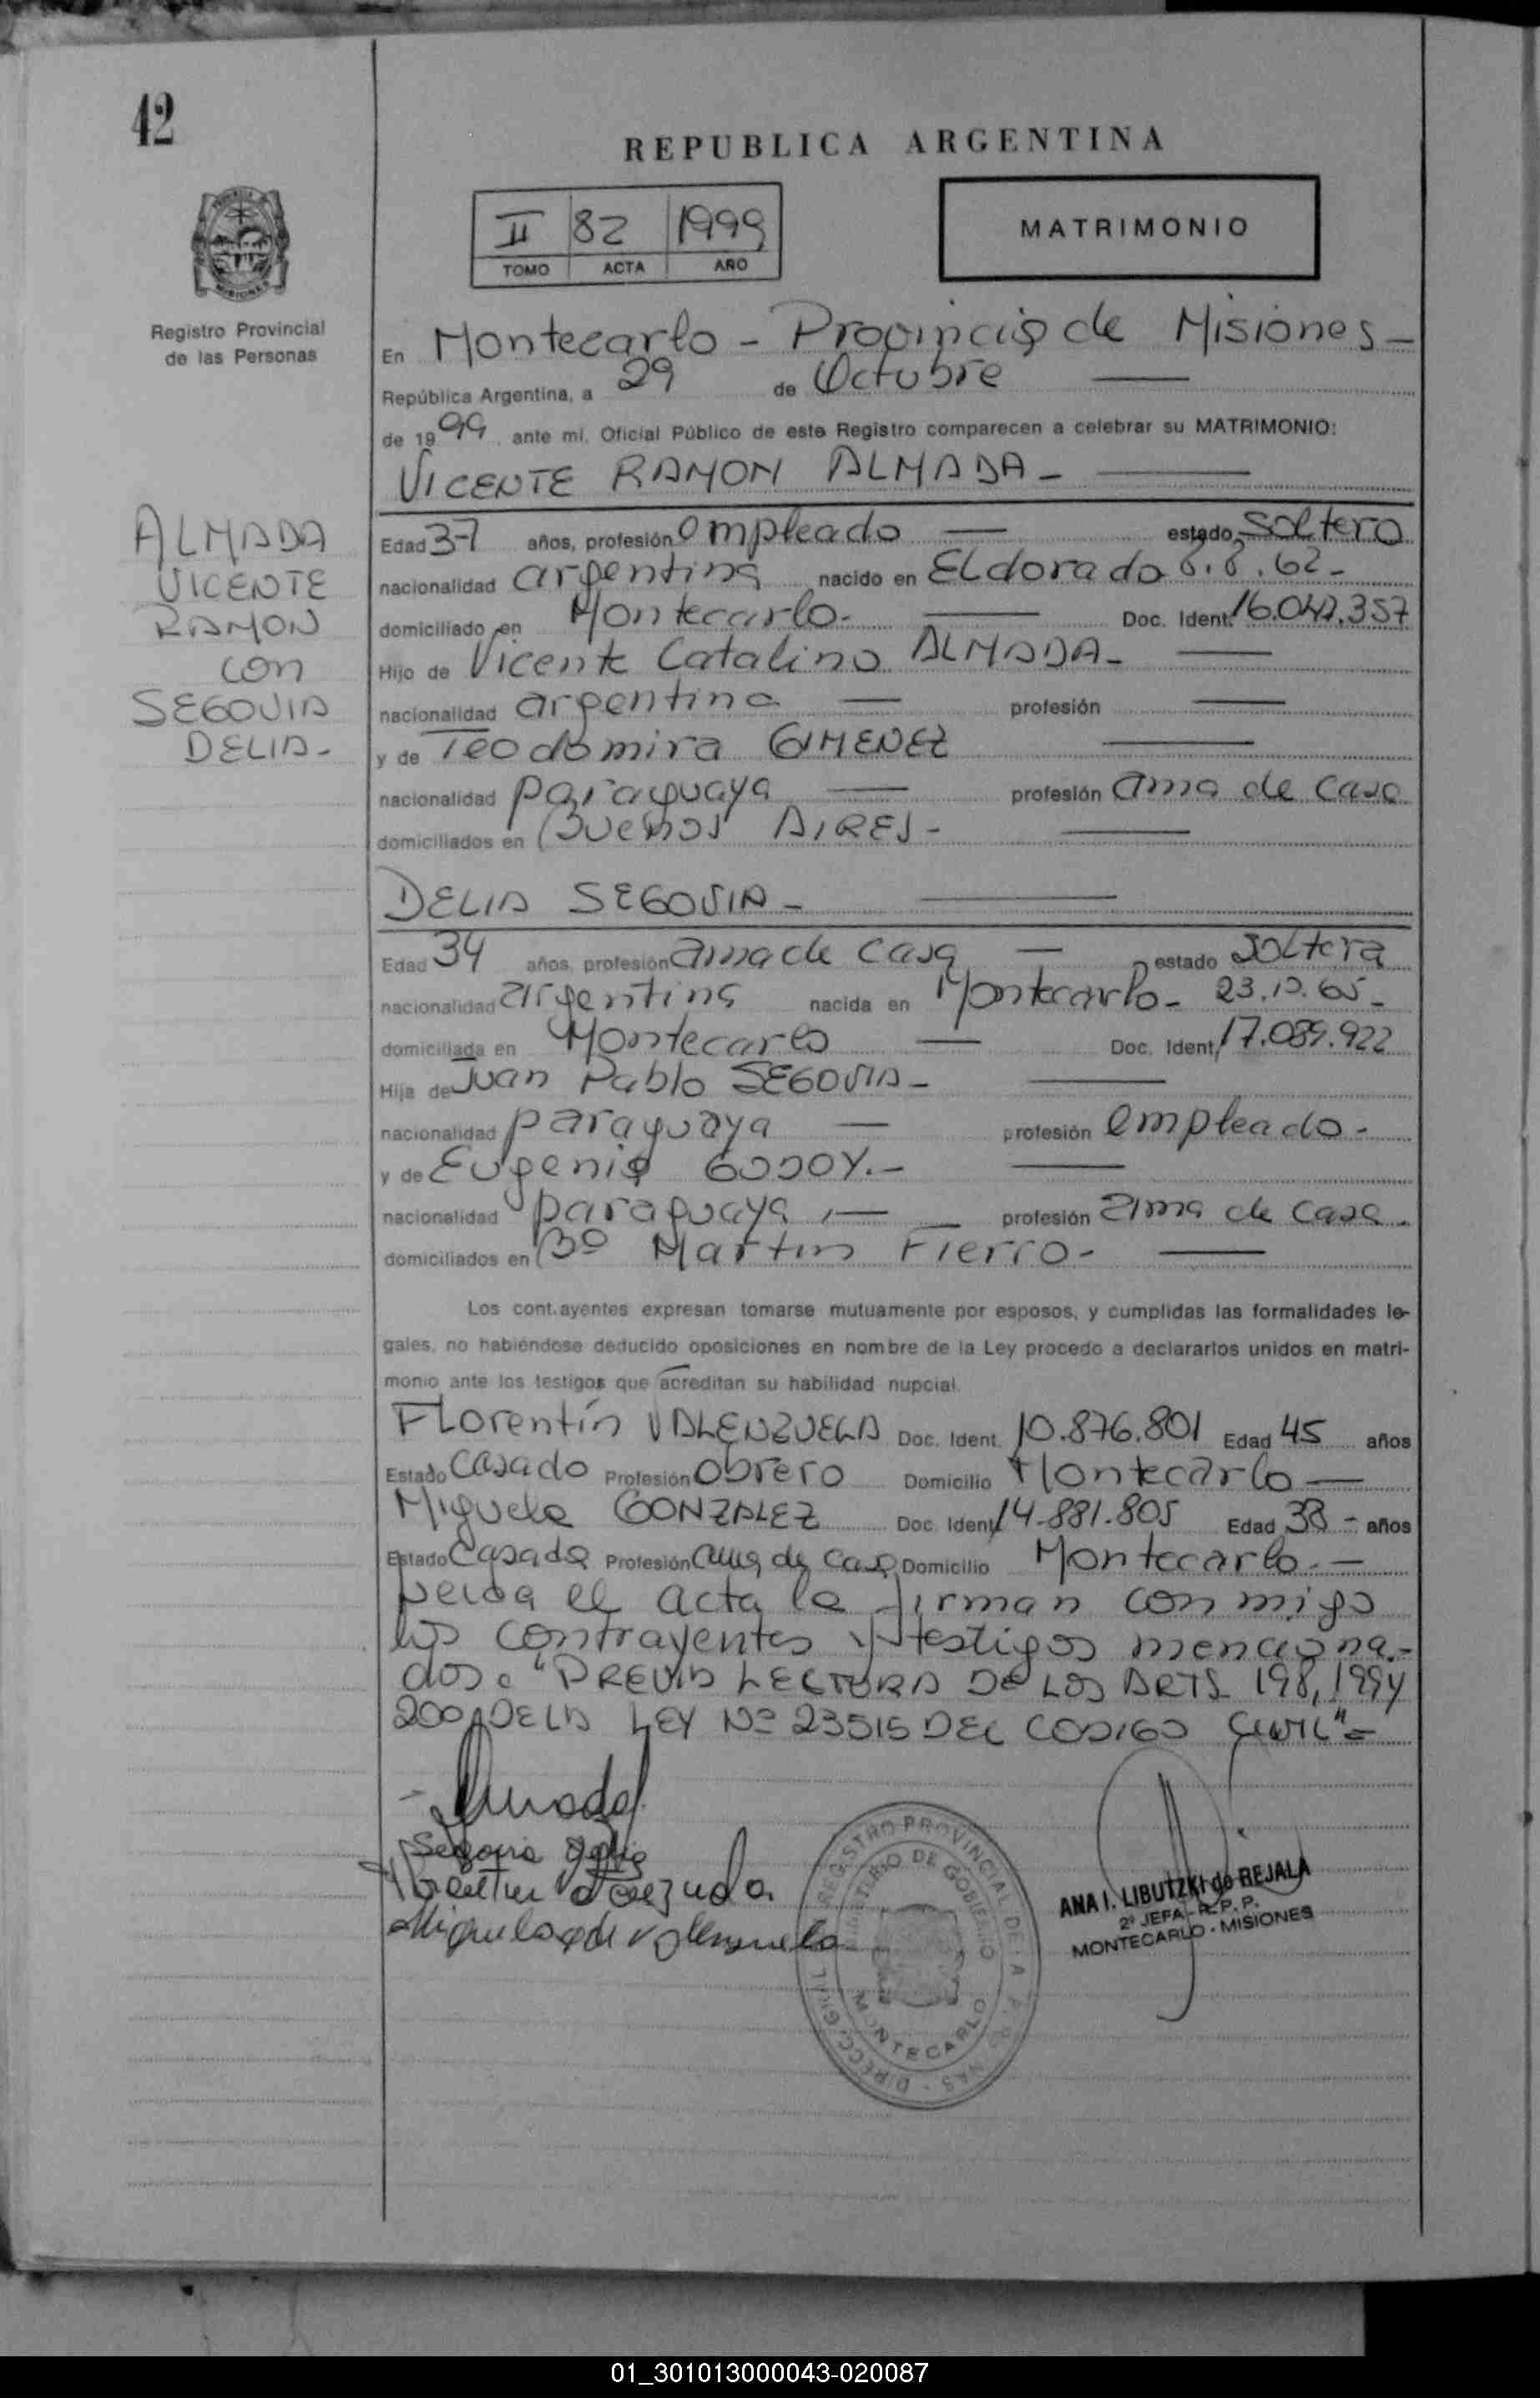 42
REPUBLICA ARGENTINA
II 82 1999
TOMO ACTA AÑO
MATRIMONIO
Registro Provincial
de las Personas
En Montecarlo - Provincia de Misiones -
República Argentina, a 29 de Octubre
de 1999, ante mí, Oficial Público de este Registro comparecen a celebrar su MATRIMONIO:
VICENTE RAMON ALMADA -
ALMADA
VICENTE
RAMON
con
SEGOVIA
DELIA -
Edad 37 años, profesión empleado estado soltero
nacionalidad argentina nacido en Eldorado 8.8.62 -
domiciliado en Montecarlo - Doc. Ident. 16.047.357
Hijo de Vicente Catalino ALMADA -
nacionalidad argentina — profesión —
y de Teodomira GIMENEZ
nacionalidad paraguaya — profesión ama de casa
domiciliados en Buenos AIRES -
DELIA SEGOVIA -
Edad 34 años, profesión ama de casa — estado soltera
nacionalidad argentina nacida en Montecarlo - 23.10.65 -
domiciliada en Montecarlo — Doc. Ident. 17.089.922
Hija de Juan Pablo SEGOVIA -
nacionalidad paraguaya — profesión empleado -
y de Eugenia GODOY. -
nacionalidad paraguaya — profesión ama de casa.
domiciliados en Bº Martin Fierro -
Los cont.ayentes expresan tomarse mutuamente por esposos, y cumplidas las formalidades le-
gales, no habiéndose deducido oposiciones en nombre de la Ley procedo a declararlos unidos en matri-
monio ante los testigos que acreditan su habilidad nupcial.
Florentín VALENZUELA Doc. Ident. 10.876.801 Edad 45 años
Estado Casado Profesión Obrero Domicilio Montecarlo —
Miguela GONZALEZ Doc. Ident. 14.881.805 Edad 38 - años
Estado Casada Profesión ama de casa Domicilio Montecarlo. —
Leída el acta la firman con migo
los contrayentes y testigos menciona-
dos. "PREVIA LECTURA DE LOS ARTS 198, 199 y
200 DE LA LEY Nº 23515 DEL CODIGO CIVIL" =
Almada
Segovia Delia
Miguela de Valenzuela
REGISTRO PROVINCIAL DE LAS PERSONAS - DIRECC. GRAL.
MINISTERIO DE GOBIERNO
MONTECARLO
ANA I. LIBUTZKI de REJALA
2ª JEFA - R. P. P.
MONTECARLO - MISIONES
01_301013000043-020087